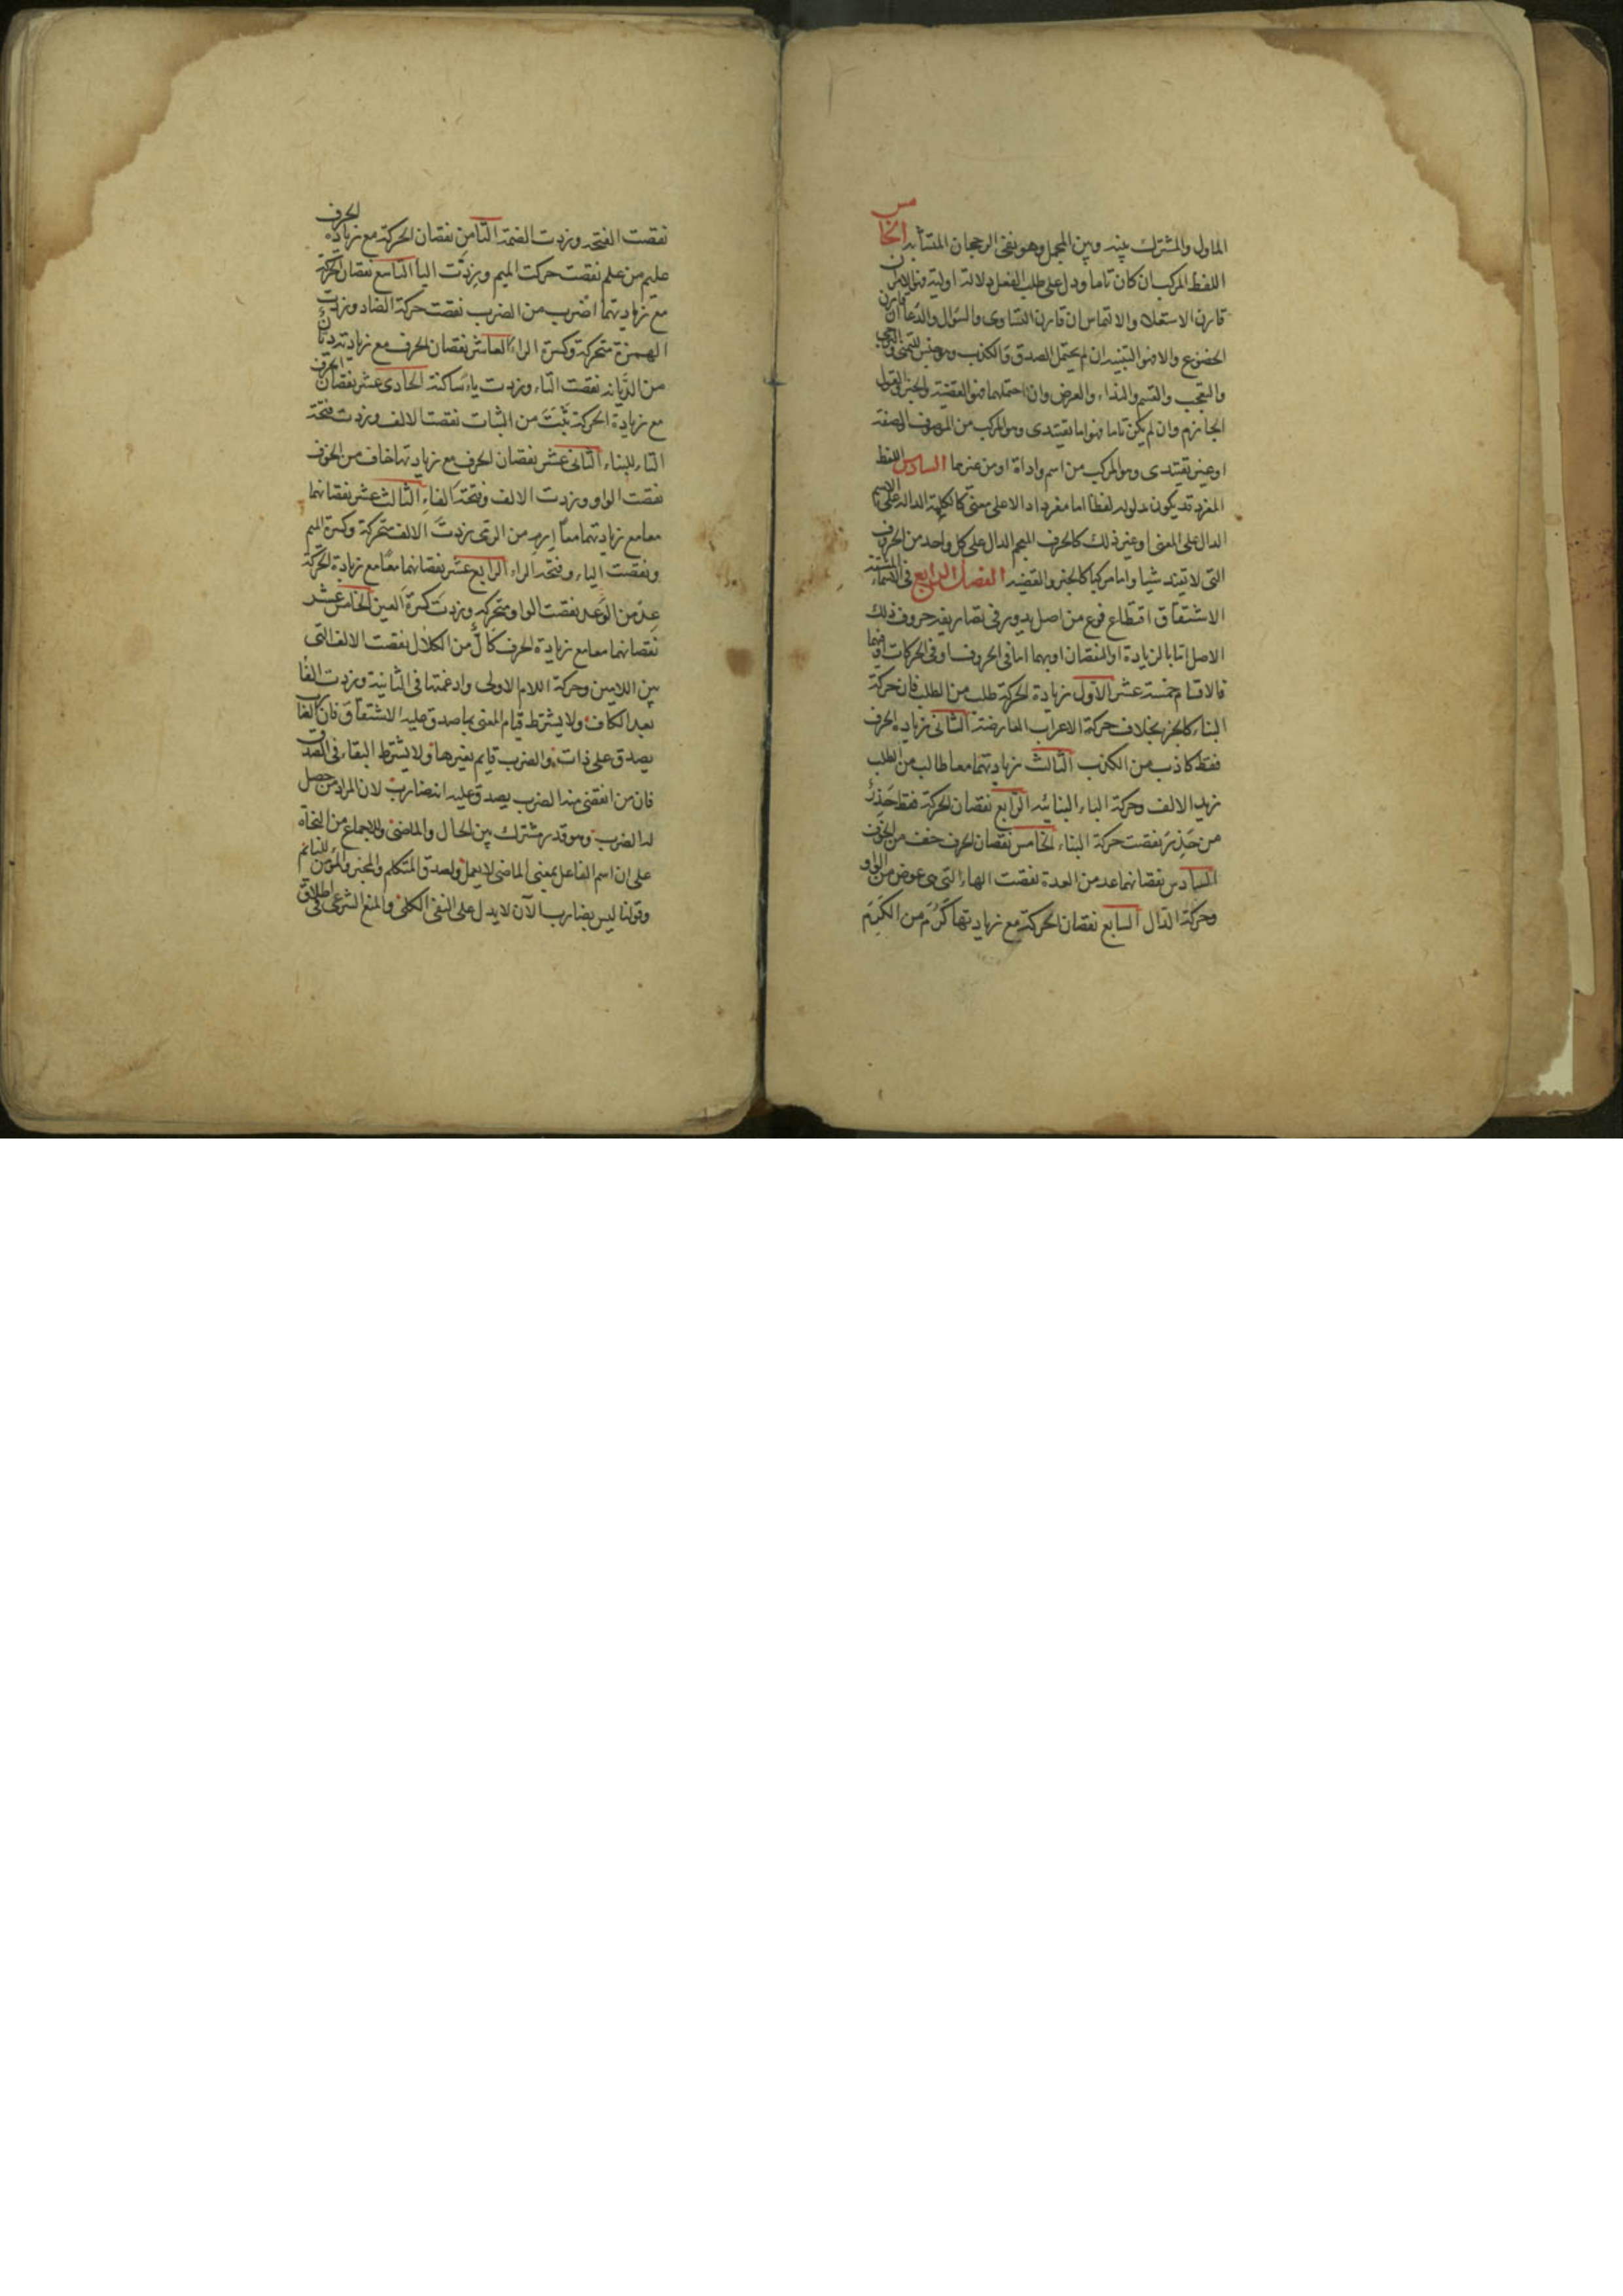 الماول والمشترك بينه وبين المجمل وهو نفى الرجحان المتشابه الخامس
اللفظ المركب ان كان تاما ودل على طلب الفعل دلالة اولية فهو الامر ان
قارن الاستعلاء والالتماس ان قارن التساوى والسؤال والدعا ان قارن
الخضوع والا فهو التنبيه ان لم يحتمل الصدق والكذب وهو جنس للتمنى والترجى
والتعجب والقسم والنداء والعرض وان احتملهما فهو القضية والخبر والقول
الجازم وان لم يكن تاما فهو اما تقييدى وهو المركب من الموصوف والصفة
او غير تقييدى وهو المركب من اسم واداة او من غيرها السادس اللفظ
المفرد قد يكون مدلوله لفظا اما مفردا دالا على معنى كالكلمة الدالة على الاسم
الدال على المعنى او غير ذلك كالحرف المعجم الدال على كل واحد من الحروف
التى لا تفيد شيا واما مركبا كالخبر والقضيه الفصل الرابع فى الاسماء المشتقة
الاشتقاق اقتطاع فرع من اصل يدور فى تصاريفه حروف ذلك
الاصل اما بالزيادة او النقصان او بهما اما فى الحروف او فى الحركات او فيهما
فالاقسام خمسة عشر الاول زيادة الحركة طلب من الطلب فان حركة
البناء كالجزء بخلاف حركة الاعراب العارضة الثانى زيادة الحرف
فقط كاذب من الكذب الثالث زيادتهما معا طالب من الطلب
زيد الالف وحركة الباء البنائيه الرابع نقصان الحركة فقط حذر
من حذر نقصت حركة البناء الخامس نقصان الحرف خف من الخوف
السادس نقصانهما عد من العدة نقصت الهاء التى هى عوض من الواو
وحركة الدال السابع نقصان الحركة مع زيادتها كرم من الكرم
نقصت الفتحة وزدت الضمة الثامن نقصان الحركة مع زيادة الحرف
عليم من علم نقصت حركت الميم وزدت اليا التاسع نقصان الحركة
مع زيادتهما اضرب من الضرب نقصت حركة الضاد وزدت
الهمزة متحركة وكسرة الراء العاشر نقصان الحرف مع زيادته
من الديانه نقصت التاء وزدت ياء ساكنة الحادى عشر نقصان الحرف
مع زيادة الحركة ثبت من الثبات نقصت الالف وزدت فتحة
التاء للبناء الثانى عشر نقصان الحرف مع زيادتها خاف من الخوف
نقصت الواو وزدت الالف وفتحة الفاء الثالث عشر نقصانهما
معا مع زيادتهما معا ارم من الرمى زدت الالف متحركة وكسرة الميم
ونقصت الياء وفتحة الراء الرابع عشر نقصانهما معا مع زيادة الحركة
عد من الوعد نقصت الواو متحركة وزدت كسرة العين الخامس عشر
نقصانهما معا مع زيادة الحرف كال من الكلال نقصت الالف التى
بين اللامين وحركة اللام الاولى وادغمتها فى الثانية وزدت الفا
بعد الكاف ولا يشترط قيام المعنى بما صدق عليه الاشتقاق فان ضاربا
يصدق على ذات والضرب قايم بغيرها ولا يشترط البقاء فى الصدق
فان من انقضى منه الضرب يصدق عليه انه ضارب لان المراد من حصل
له الضرب وهو قدر مشترك بين الحال والماضى وللاجماع من النحاة
على ان اسم الفاعل بمعنى الماضى لا يعمل ولصدق المتكلم والمخبر والمؤمن للنايم
وقولنا ليس بضارب الآن لا يدل على النفى الكلى والمنع الشرعى فى اطلاق